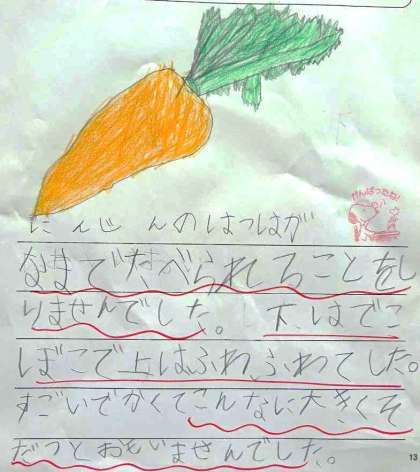 がんばったね!
にんじんのはっはが
なまでたべられることをし
りませんでした。下はでこ
ぼこで上はふわふわてした。
すごいでかくてこんなに大きくそ
だつとおもいませんでした。
13